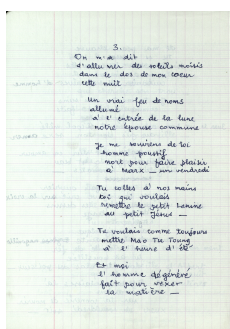 3.
On m'a dit
d'allumer des soleils moisis
dans le dos de mon cœur
cette nuit
Un vrai feu de noms
allumé
à l'entrée de la lune
notre épouse commune
Je me souviens de toi
homme poussif
mort pour faire plaisir
à Marx — un vendredi
Tu colles à nos mains
toi qui voulais
remettre le petit Lénine
au petit Jésus —
Tu voulais comme toujours
mettre Mao Tsé Toung
à l'heure d'été
Et moi
l'homme dégénéré
fait pour vexer
la matière —